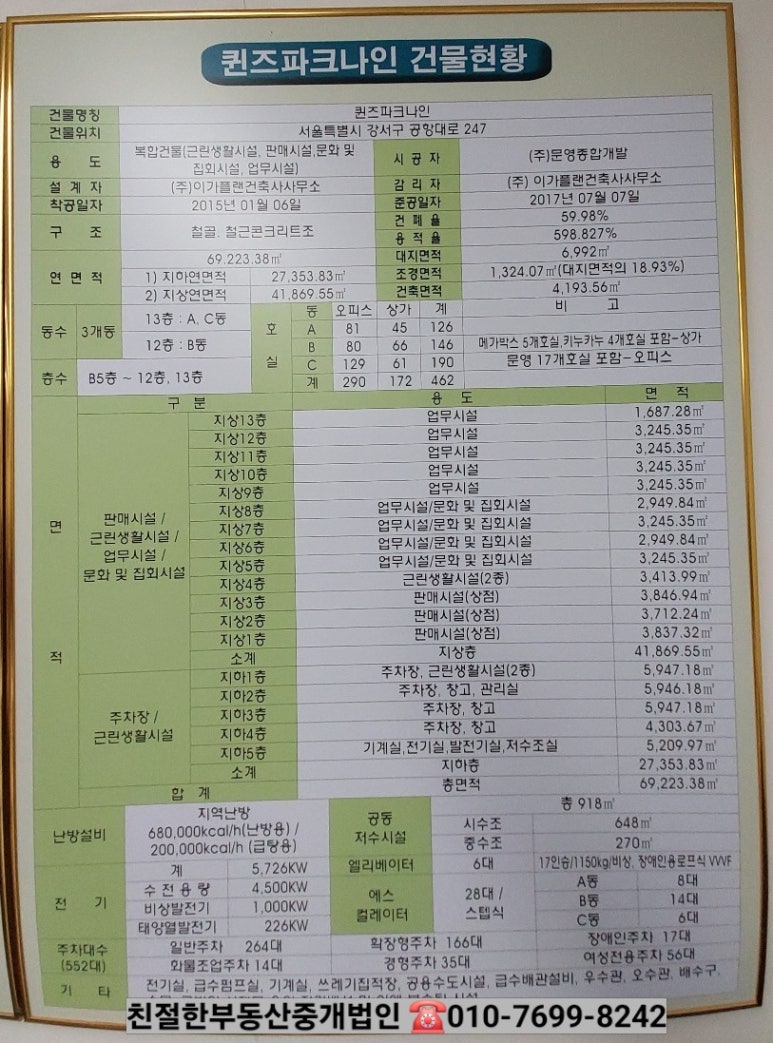 퀸즈파크나인 건물현황
건물명칭 퀸즈파크나인
건물위치 서울특별시 강서구 공항대로 247
용 도 복합건물(근린생활시설, 판매시설,문화 및 집회시설, 업무시설) 시 공 자 (주)문영종합개발
설 계 자 (주)이가플랜건축사사무소 감 리 자 (주) 이가플랜건축사사무소
착공일자 2015년 01월 06일 준공일자 2017년 07월 07일
구 조 철골. 철근콘크리트조 건 폐 율 59.98%
용 적 율 598.827%
연 면 적 69.223.38㎡ 대지면적 6,992㎡
1) 지하연면적 27,353.83㎡ 조경면적 1,324.07㎡(대지면적의 18.93%)
2) 지상연면적 41,869.55㎡ 건축면적 4,193.56㎡
동수 3개동 13층 : A, C동 12층 : B동
층수 B5층 ~ 12층, 13층
호 실 동 오피스 상가 계 비 고
A 81 45 126
B 80 66 146 메가박스 5개호실,키누카누 4개호실 포함-상가
C 129 61 190 문영 17개호실 포함-오피스
계 290 172 462
면 적 구 분 용 도 면 적
판매시설 / 근린생활시설 / 업무시설 / 문화 및 집회시설
지상13층 업무시설 1,687.28㎡
지상12층 업무시설 3,245.35㎡
지상11층 업무시설 3,245.35㎡
지상10층 업무시설 3,245.35㎡
지상9층 업무시설 3,245.35㎡
지상8층 업무시설/문화 및 집회시설 2,949.84㎡
지상7층 업무시설/문화 및 집회시설 3,245.35㎡
지상6층 업무시설/문화 및 집회시설 2,949.84㎡
지상5층 업무시설/문화 및 집회시설 3,245.35㎡
지상4층 근린생활시설(2종) 3,413.99㎡
지상3층 판매시설(상점) 3,846.94㎡
지상2층 판매시설(상점) 3,712.24㎡
지상1층 판매시설(상점) 3,837.32㎡
소계 지상층 41,869.55㎡
주차장 / 근린생활시설
지하1층 주차장, 근린생활시설(2종) 5,947.18㎡
지하2층 주차장, 창고, 관리실 5,946.18㎡
지하3층 주차장, 창고 5,947.18㎡
지하4층 주차장, 창고 4,303.67㎡
지하5층 기계실,전기실,발전기실,저수조실 5,209.97㎡
소계 지하층 27,353.83㎡
합 계 총면적 69,223.38㎡
난방설비 지역난방 680,000kcal/h(난방용) / 200,000kcal/h (급탕용)
공동 저수시설 총 918㎥
시수조 648㎥
중수조 270㎥
엘리베이터 6대 17인승/1150kg/비상, 장애인용로프식 VVVF
전 기 계 5,726KW
수 전 용 량 4,500KW
비상발전기 1,000KW
태양열발전기 226KW
에스컬레이터 28대 / 스텝식
A동 8대
B동 14대
C동 6대
주차대수 (552대) 일반주차 264대 확장형주차 166대 장애인주차 17대
화물조업주차 14대 경형주차 35대 여성전용주차 56대
기 타 전기실, 급수펌프실, 기계실, 쓰레기집적장, 공용수도시설, 급수배관설비, 우수관, 오수관, 배수구,
친절한부동산중개법인 ☎010-7699-8242